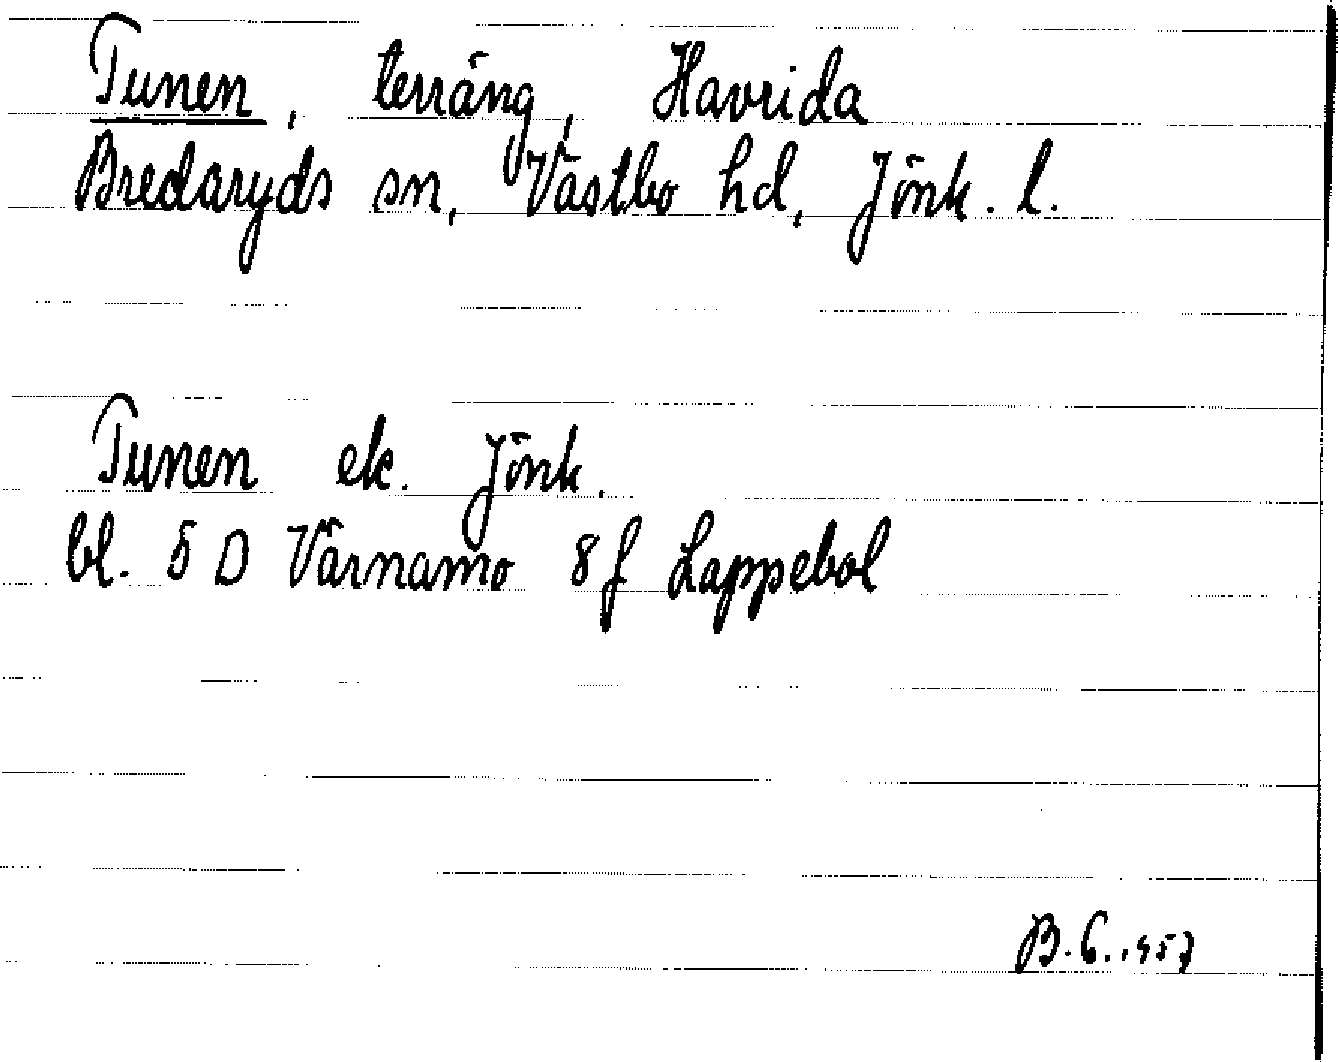 Tunen, terräng, Havrida
Bredaryds sn, Västbo hd, Jönk. l.
Tunen ek. Jönk.
bl. 5 D Värnamo 8 f Lappebol
B.G. 1957